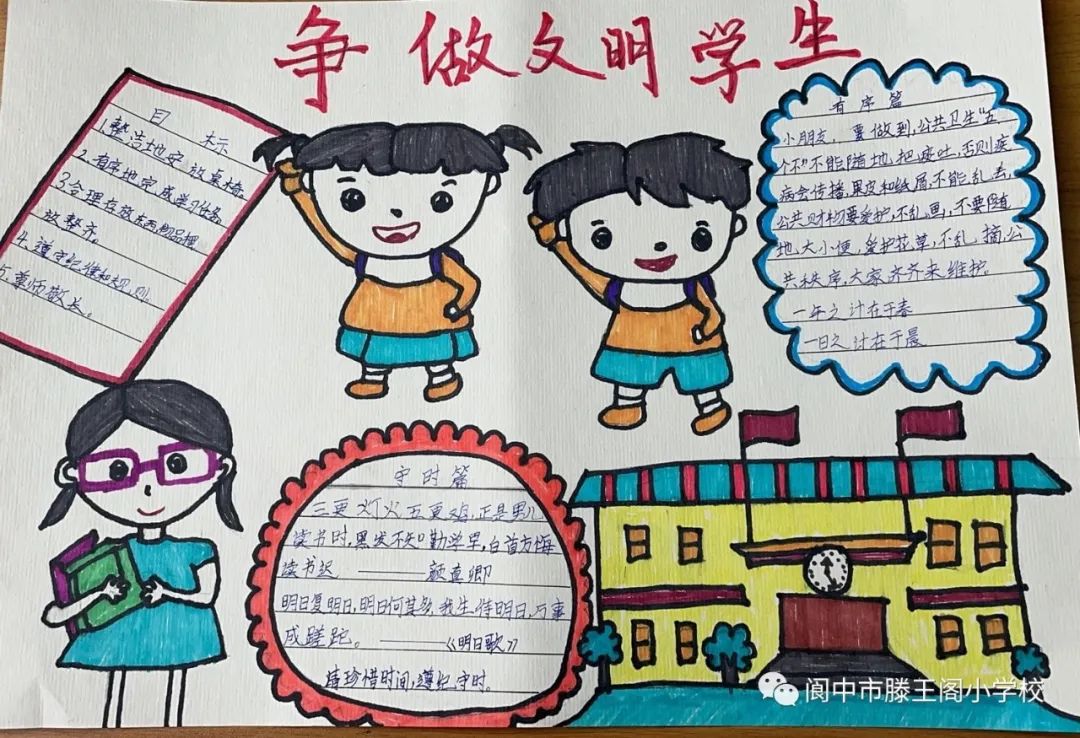 争做文明学生
目标
1.整洁地安放桌椅。
2.有序地完成学习任务
3.合理存放东西物品摆
放整齐。
4.遵守纪律和规则
5.尊师敬长。
有序篇
小朋友,要做到,公共卫生"五
个不"不能随地把痰吐,否则疾
病会传播,果皮和纸屑,不能乱丢,
公共财物要爱护,不乱画,不要随
地大小便,爱护花草,不乱摘,公
共秩序,大家齐齐来维护。
一年之计在于春
一日之计在于晨
守时篇
三更灯火五更鸡,正是男儿
读书时,黑发不知勤学早,白首方悔
读书迟 ——颜真卿
明日复明日,明日何其多,我生待明日,万事
成蹉跎。——《明日歌》
请珍惜时间,遵纪守时。
阆中市滕王阁小学校